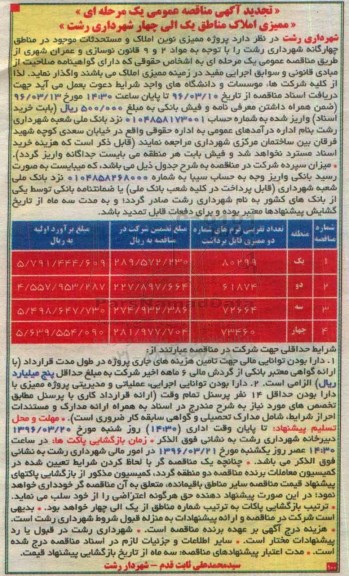 « تجدید آگهی مناقصه عمومی یک مرحله ای »
« ممیزی املاک مناطق یک الی چهار شهرداری رشت »
شهرداری رشت در نظر دارد پروژه ممیزی نوین املاک و مستحدثات موجود در مناطق
چهارگانه شهرداری رشت را با توجه به مواد ۲ و ۹ قانون نوسازی و عمران شهری از
طریق مناقصه عمومی یک مرحله ای به اشخاص حقوقی که دارای گواهینامه صلاحیت از
مبادی قانونی و سوابق اجرایی مفید در زمینه ممیزی املاک می باشند واگذار نماید. لذا
از کلیه شرکت ها، موسسات و دانشگاه های واجد شرایط دعوت بعمل می آید جهت
دریافت اسناد مناقصه از تاریخ ۹۶/۰۳/۱۰ تا پایان ساعت ۱۴:۳۰ مورخ ۹۶/۰۳/۱۳
(ضمن همراه داشتن معرفی نامه و فیش بانکی به مبلغ ۵۰۰/۰۰۰ ریال (بابت خرید
اسناد) واریز شده به شماره حساب ۰۱۰۴۸۵۸۱۷۳۰۰۱ نزد بانک ملی شعبه شهرداری
رشت بنام اداره درآمدهای عمومی به اداره حقوقی واقع در خیابان سعدی کوچه شهید
فرقان بین ساختمان مرکزی شهرداری مراجعه نمایند (قابل ذکر است که هزینه خرید
اسناد مسترد نخواهد شد و فیش بابت هر منطقه می بایست جداگانه واریز گردد).
• میزان سپرده شرکت در مناقصه به شرح جدول ذیل می باشد، که میبایست به صورت
رسید بانکی واریز وجه به حساب سیبا به شماره ۰۱۰۴۸۵۸۲۶۸۰۰۰ نزد بانک ملی
شعبه شهرداری (قابل پرداخت در کلیه شعب بانک ملی) یا ضمانتنامه بانکی توسط یکی
از بانک های کشور به نام شهرداری رشت صادر گردد؛ و به مدت سه ماه از تاریخ
گشایش پیشنهادها معتبر بوده و برای دفعات قابل تمدید باشد.
شماره مناقصه | منطقه | تعداد تقریبی فرم های شماره دو ممیزی قابل برداشت | مبلغ تضمین شرکت در مناقصه به ریال | مبلغ برآورد اولیه به ریال
۱ | یک | ۸۰۲۹۹ | ۲۸۹/۵۷۲/۲۳۰ | ۵/۷۹۱/۴۴۴/۶۰۹
۲ | دو | ۶۱۸۷۴ | ۲۲۷/۸۹۷/۶۶۴ | ۴/۵۵۷/۹۵۳/۲۸۷
۳ | سه | ۷۲۶۶۴ | ۲۷۴/۹۳۲/۳۸۶ | ۵/۴۹۸/۶۴۷/۷۳۰
۴ | چهار | ۷۳۴۶۰ | ۲۸۱/۹۷۷/۷۰۴ | ۵/۶۳۹/۵۵۴/۰۹۰
شرایط حداقلی جهت شرکت در مناقصه عبارتند از:
۱. دارا بودن توانایی مالی جهت تامین هزینه های جاری پروژه در طول مدت قرارداد (با
ارائه گواهی معتبر بانکی از گردش مالی ۶ ماهه اخیر شرکت به مبلغ حداقل پنج میلیارد
ریال) الزامی است. ۲. دارا بودن توانایی اجرایی، عملیاتی و مدیریتی پروژه ممیزی با
دارا بودن حداقل ۱۴ نفر پرسنل تمام وقت (ارائه قرارداد کاری با پرسنل مطابق
تخصص های مورد نیاز به شرح مندرج در اسناد به همراه ارائه مدارک و مستندات
احراز شرایط، شامل مدارک تحصیلی و گواهی سابقه کار ضروری است). • مهلت و محل
تسلیم پیشنهاد: تا پایان وقت اداری (۱۴:۳۰) روز شنبه مورخ ۱۳۹۶/۰۳/۲۰
دبیرخانه شهرداری رشت به نشانی فوق الذکر • زمان بازگشایی پاکت ها: در ساعت
۱۴:۳۰ عصر روز یکشنبه مورخ ۱۳۹۶/۰۳/۲۱ در امور مالی شهرداری رشت به نشانی
فوق الذکر می باشد. • چنانچه یک مناقصه گر با لحاظ کردن شرایط تعیین شده در
کمیسیون معاملات برنده مناقصه دو منطقه گردد، کمیسیون مذکور از بازگشایی پاکتهای
پیشنهاد قیمت مناقصه سایر مناطق باقیمانده، متعلق به آن مناقصه گر خودداری خواهد
نمود؛ در این صورت پیشنهاد دهنده حق هرگونه اعتراضی را از خود سلب می نماید.
• ترتیب بازگشایی پاکات به ترتیب شماره مناطق از یک الی چهار خواهد بود. • بدیهی
است شرکت در مناقصه و ارائه پیشنهادات به منزله قبول شروط شهرداری رشت است.
• هزینه درج آگهی بر عهده برنده مناقصه است. • شهرداری رشت در قبول یا رد
پیشنهادات مختار است. • سایر اطلاعات و جزئیات لازم در اسناد مناقصه درج شده
است. • مدت اعتبار پیشنهادهای مناقصه: سه ماه از تاریخ بازگشایی پیشنهاد قیمت.
سیدمحمدعلی ثابت قدم - شهردار رشت